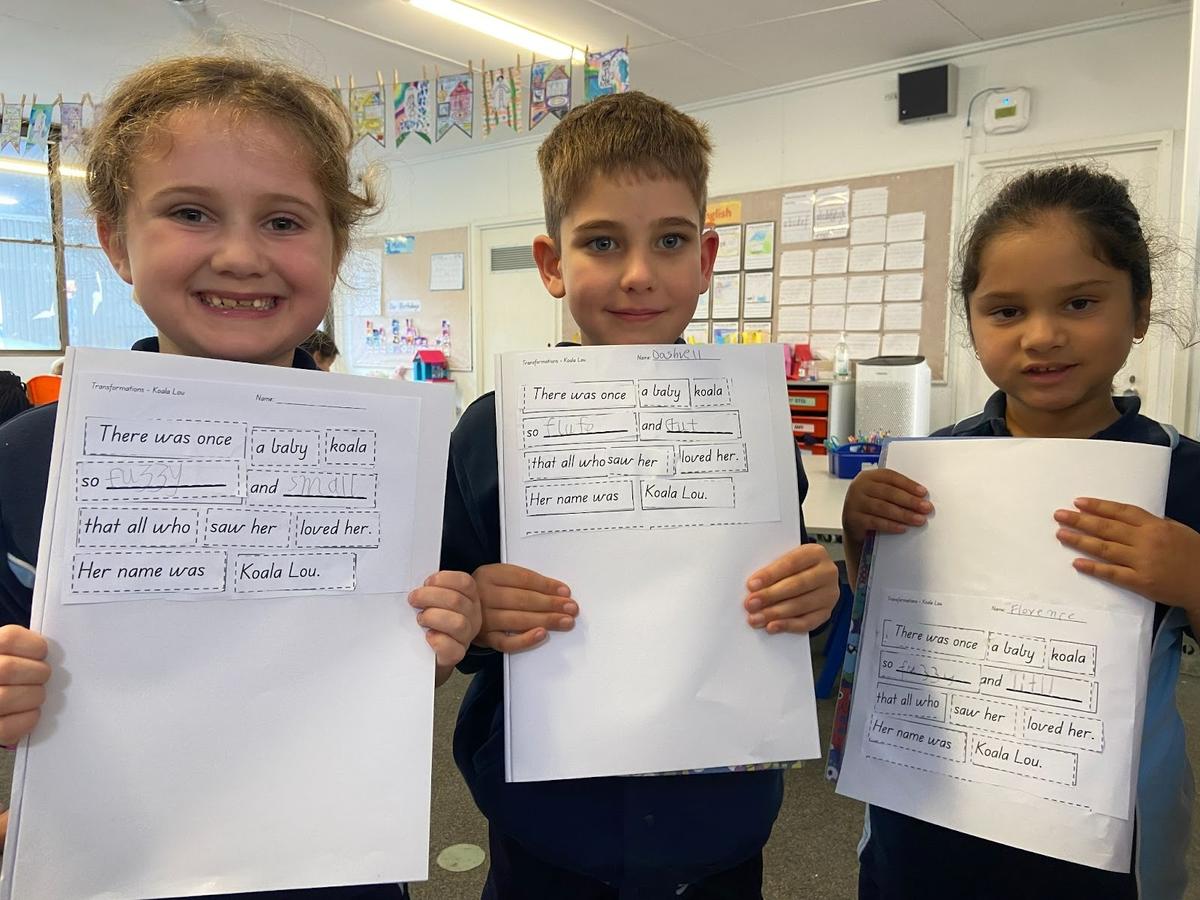 English
Our Birthdays
Transformations - Koala Lou Name:
There was once a baby koala
so fuzzy and small
that all who saw her loved her.
Her name was Koala Lou.
Transformations - Koala Lou Name: Dashell
There was once a baby koala
so flute and
that all who saw her loved her.
Her name was Koala Lou.
Transformations - Koala Lou Name: Florence
There was once a baby koala
so fuzzy and
that all who saw her loved her.
Her name was Koala Lou.